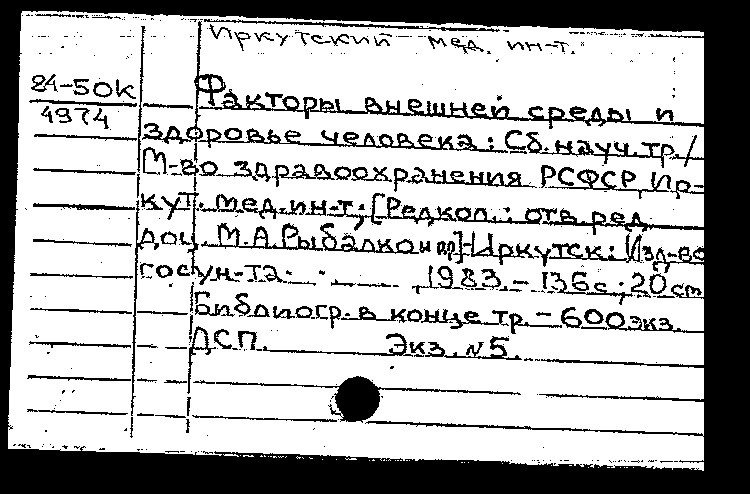 Иркутский мед. ин-т.
84-50к
4974
Факторы внешней среды и
здоровье человека: Сб. науч. тр./
М-во здравоохранения РСФСР, Ир-
кут. мед. ин-т; [Редкол.: отв. ред.
доц. М.А. Рыбалко и др.]-Иркутск: Изд-во
гос ун-та, 1983.- 136с.; 20 cm
Библиогр. в конце тр. - 600 экз.
ДСП. Экз. №5.